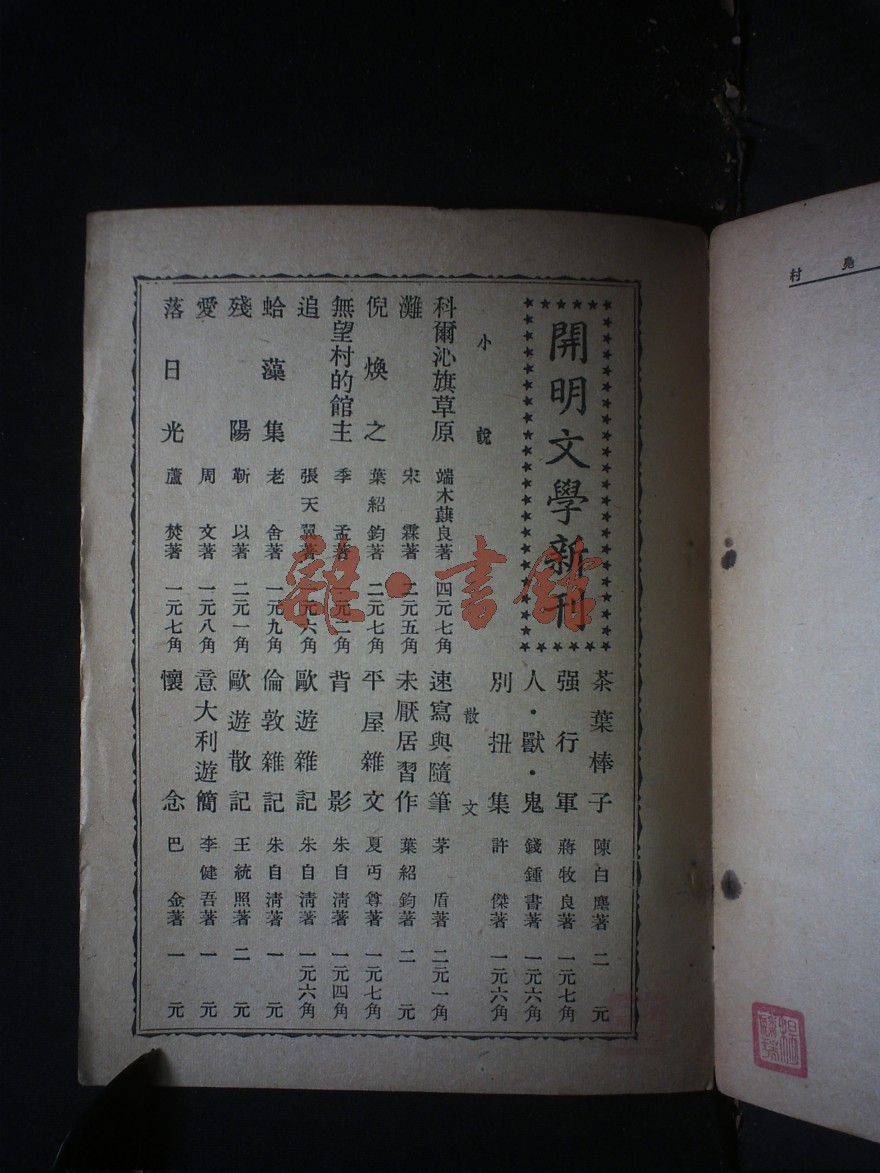 開明文學新刊
小說
科爾沁旗草原 端木蕻良著 四元七角
灘 宋霖著 二元五角
倪煥之 葉紹鈞著 二元七角
無望村的館主 季孟著 一元二角
追 張天翼著 一元六角
蛤藻集 老舍著 一元九角
殘陽 靳以著 二元一角
愛 周文著 一元八角
落日光 蘆焚著 一元七角
茶葉棒子 陳白塵著 二元
强行軍 蔣牧良著 一元七角
人·獸·鬼 錢鍾書著 一元六角
別扭集 許傑著 一元六角
散文
速寫與隨筆 茅盾著 二元一角
未厭居習作 葉紹鈞著 二元
平屋雜文 夏丏尊著 一元七角
背影 朱自淸著 一元四角
歐遊雜記 朱自淸著 一元六角
倫敦雜記 朱自淸著 一元
歐遊散記 王統照著 二元
意大利遊簡 李健吾著 一元
懷念 巴金著 一元
雜·書館
村